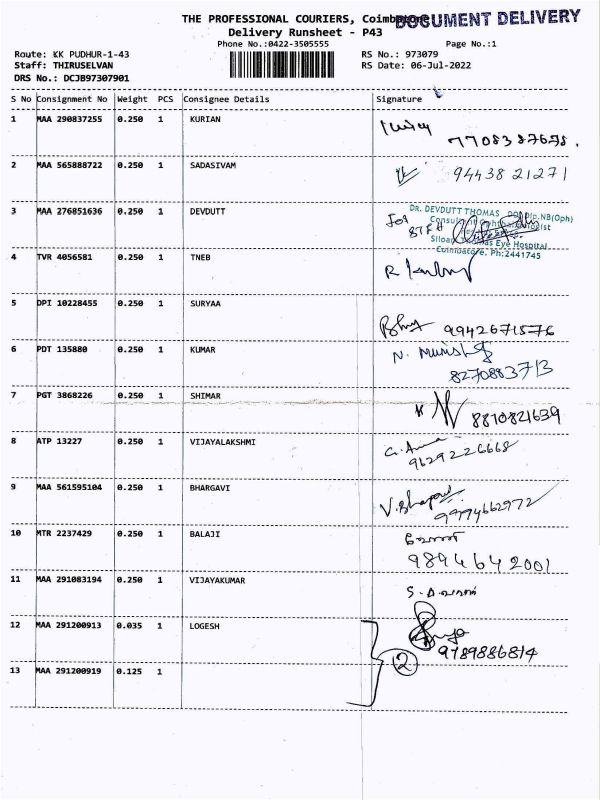 THE PROFESSIONAL COURIERS, Coimbatore
DOCUMENT DELIVERY
Delivery Runsheet - P43
Phone No.:0422-3505555
Page No.:1
Route: KK PUDHUR-1-43
RS No.: 973079
Staff: THIRUSELVAN
RS Date: 06-Jul-2022
DRS No.: DCJB97307901
S No Consignment No Weight PCS Consignee Details Signature
1 MAA 290837255 0.250 1 KURIAN
2 MAA 565888722 0.250 1 SADASIVAM 9443821271
3 MAA 276851636 0.250 1 DEVDUTT For
DR. DEVDUTT THOMAS
Eye Hospital
Coimbatore. Ph:2441745
4 TVR 4056581 0.250 1 TNEB
5 DPI 10228455 0.250 1 SURYAA 9942671576
6 PDT 135880 0.250 1 KUMAR
8270883713
7 PGT 3868226 0.250 1 SHIMAR 8870821639
8 ATP 13227 0.250 1 VIJAYALAKSHMI
9629226668
9 MAA 561595104 0.250 1 BHARGAVI
9994662972
10 MTR 2237429 0.250 1 BALAJI
9894642001
11 MAA 291083194 0.250 1 VIJAYAKUMAR
12 MAA 291200913 0.035 1 LOGESH
9789886814
2
13 MAA 291200919 0.125 1